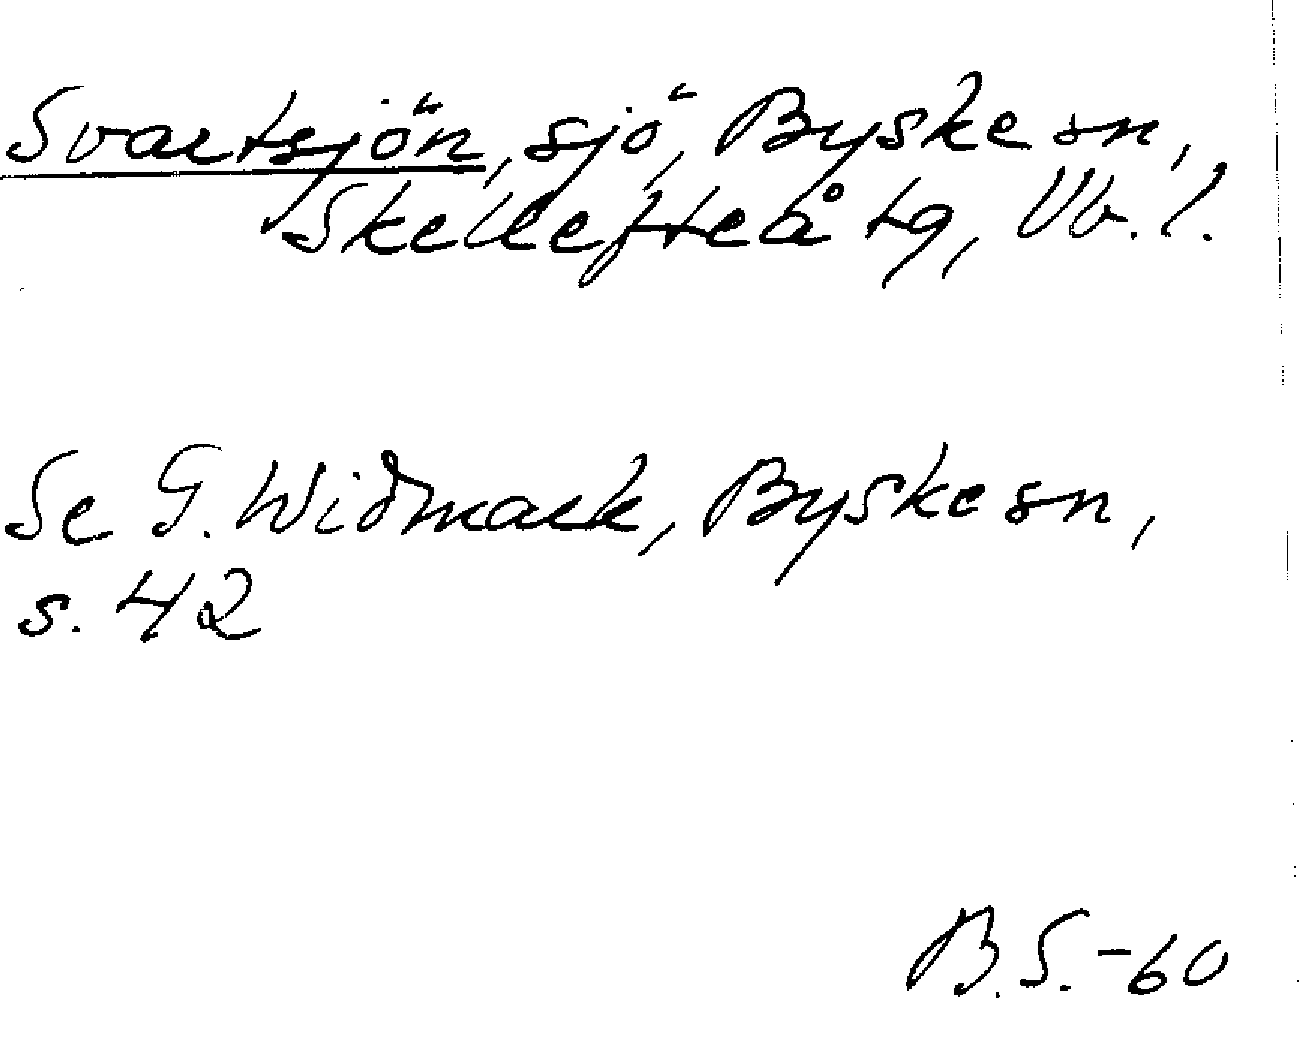 Svartsjön, sjö, Byske sn,
Skellefteå tg, Vb. l.
Se G. Widmark, Byske sn,
s. 42
B.S.-60